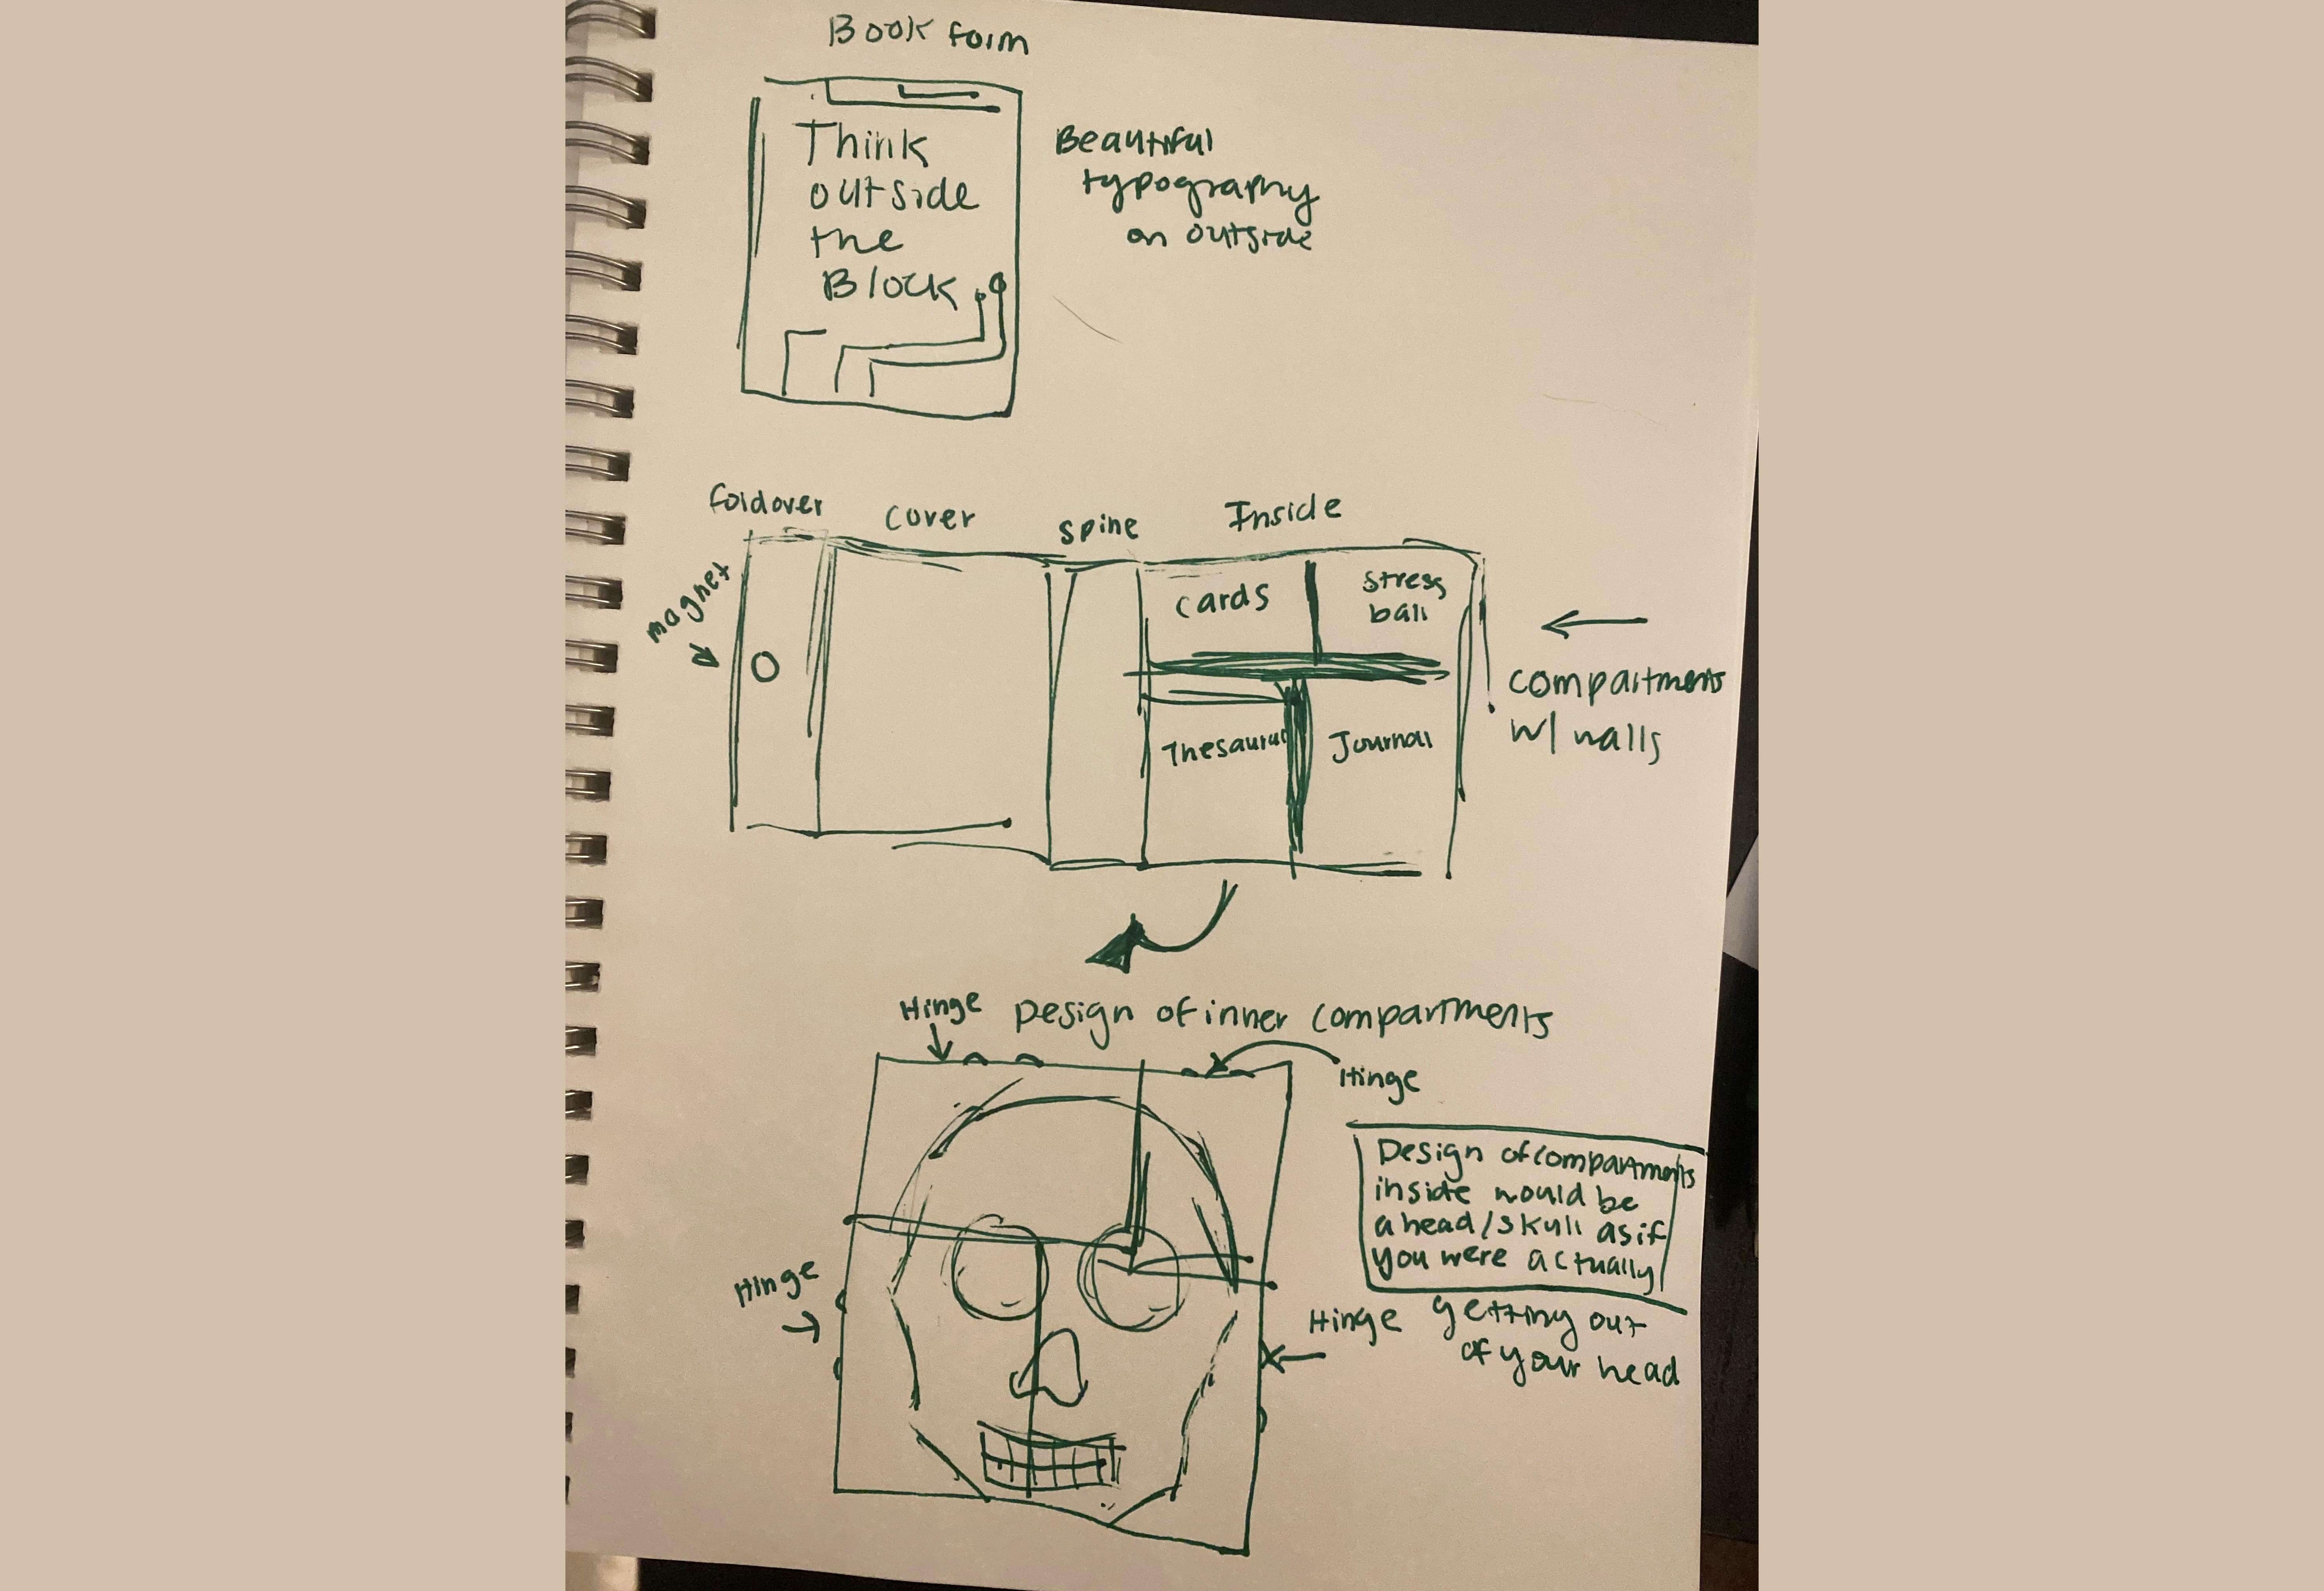 Book form
Think
outside
the
Block
Beautiful
typography
on outside
foldover
cover
spine
Inside
magnet
cards
stress
ball
Thesaurus
Journal
compartments
w/ walls
Hinge
Design of inner compartments
Hinge
Design of compartments
inside would be
a head/skull as if
you were actually
getting out
of your head
Hinge
Hinge